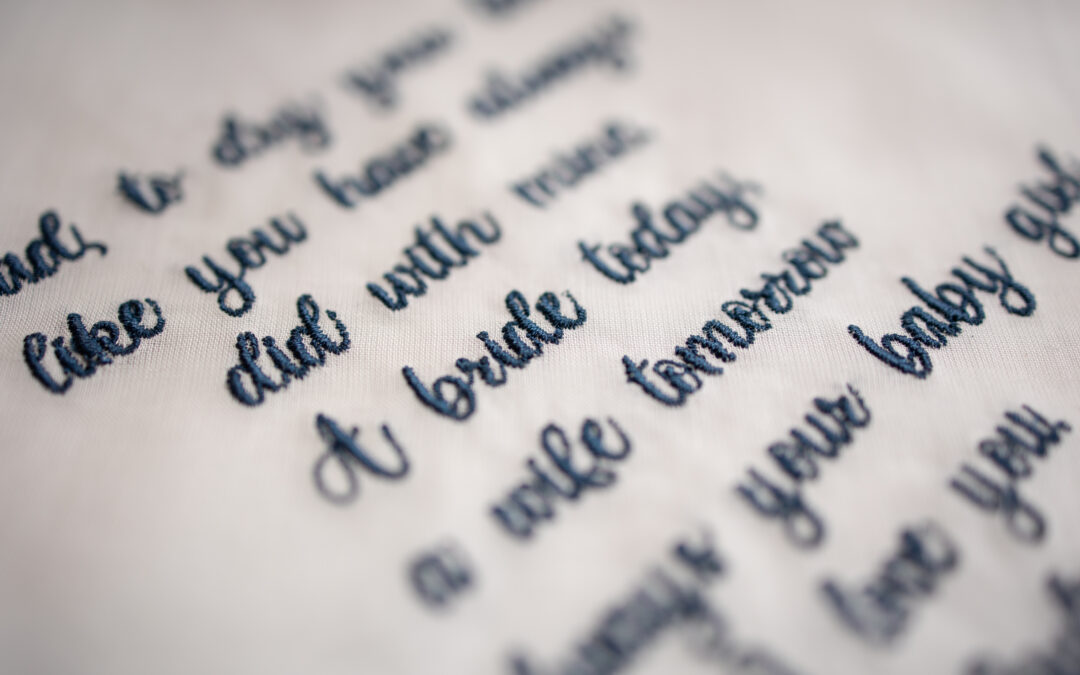 to dry your
like you have always
did with mine.
A bride today,
a wife tomorrow
always your baby girl
love you,